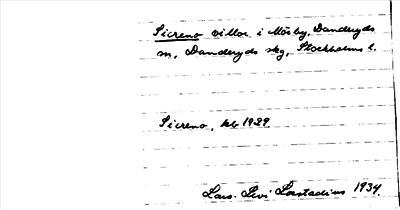 Sicreno villor i Mörby, Danderyds
sn, Danderyds skg, Stockholms l.
Sicreno, kb 1929
Lars-Levi Læstadius 1934.